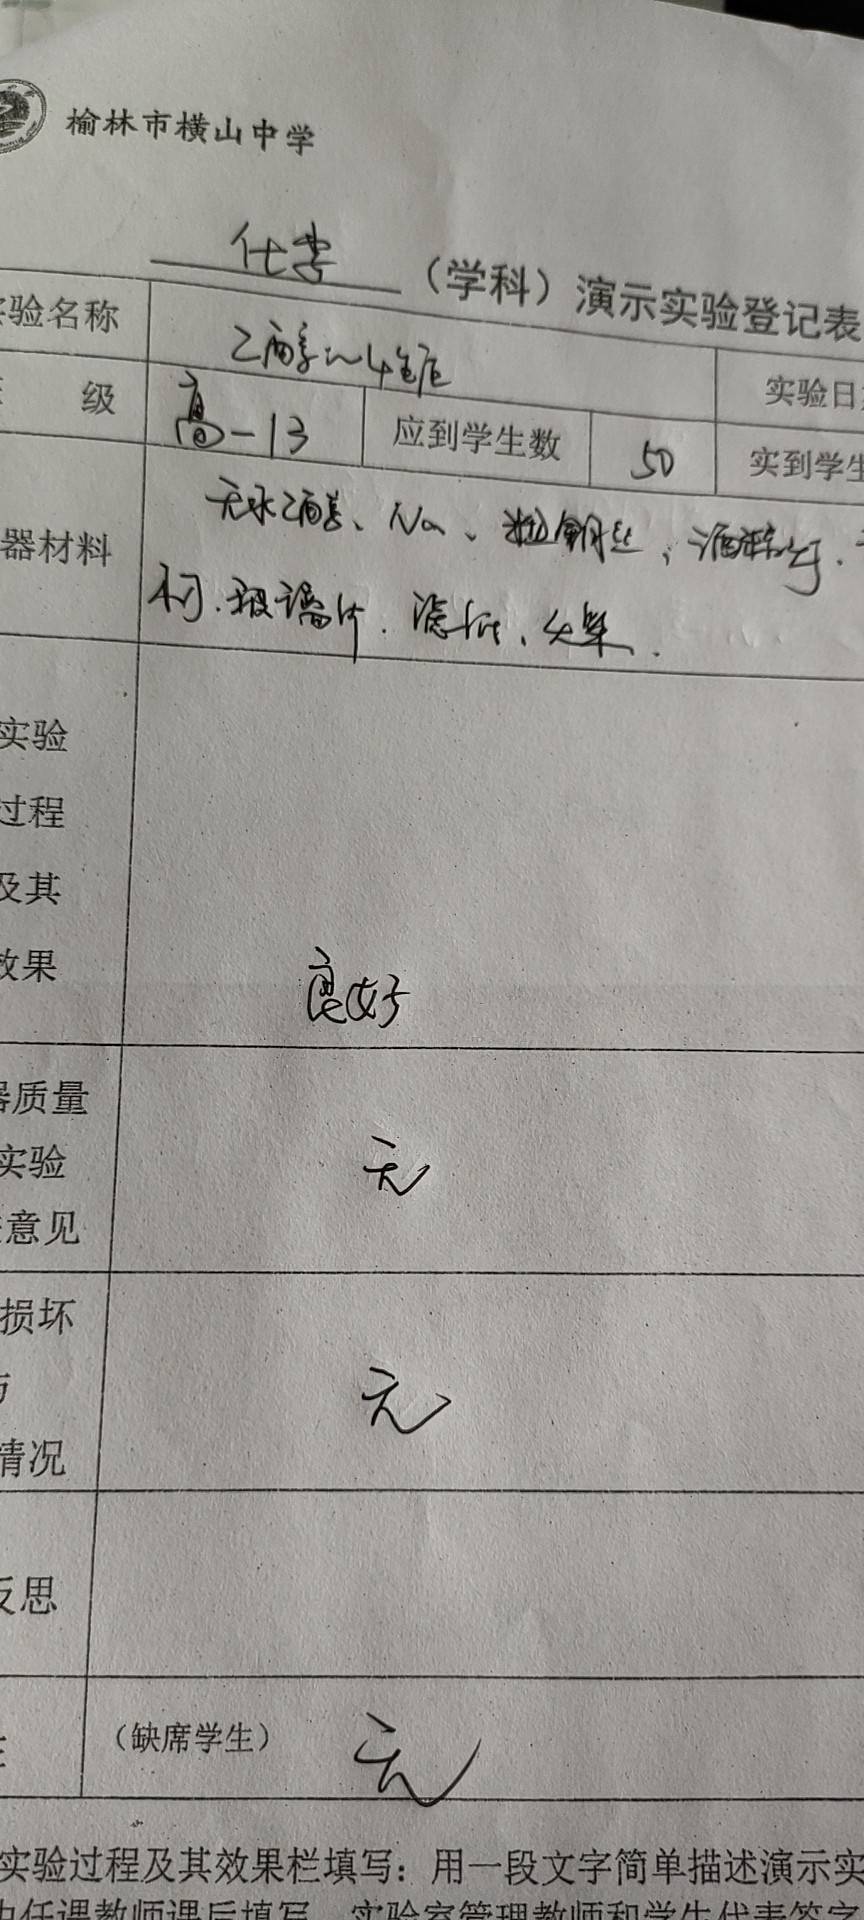 榆林市横山中学
化学（学科）演示实验登记表
验名称 乙醇 实验日
级 高一13 应到学生数 50 实到学生
器材料 无水乙醇、Na、粗铜丝、酒精灯.
玻璃片.滤纸、火柴.
实验
过程
及其
效果 良好
器质量 无
实验
意见
损坏 无
情况
反思
（缺席学生） 无
实验过程及其效果栏填写：用一段文字简单描述演示实
由任课教师课后填写，实验室管理教师和学生代表签字